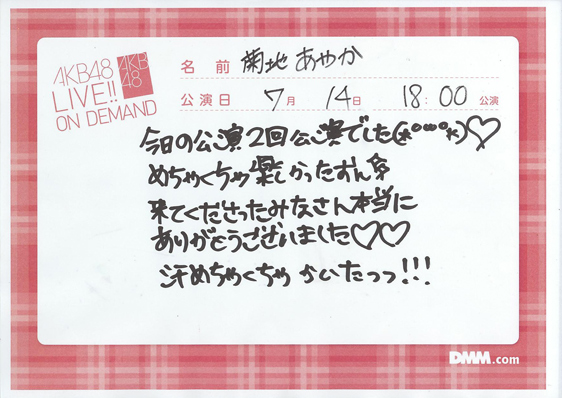 AKB48
LIVE!!
ON DEMAND
AKB
48
名前 菊地あやか
公演日 7月 14日 18:00 公演
今日の公演2回公演でした(*°°°*)♡
めちゃくちゃ楽しかったずん
来てくださったみなさん本当に
ありがとうございました♡♡
汗めちゃくちゃかいたっっ!!!
DMM.com